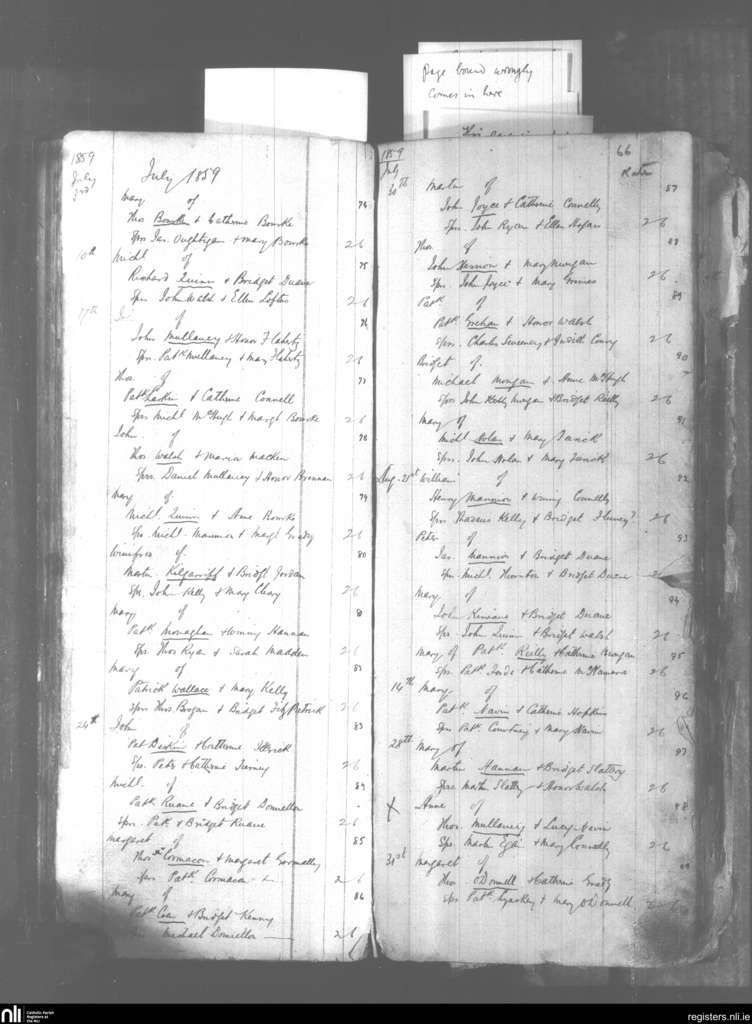 page bound wrongly
comes in here
1859
July 1859
July
3rd
Mary of
74
Thos Bourke & Catherine Bourke
Spr Jas. Oughtigan & Mary Bourke 2 6
10th
Michl of
75
Richard Quinn & Bridget Duane
Spr John Walsh & Ellen Loftus 2 6
17th
of
76
John Mullaney & Honor Flaherty
Spr Patk Mullaney & Mary Flaherty 2 6
Thos. of
77
Patk Larkin & Cathrine Connell
Spr Michl McHugh & Margt Bourke 2 6
John of
78
Thos Walsh & Maria Macken
Sprs Daniel Mullaney & Honor Brennan 2 6
Mary of
79
Michl Quinn & Anne Rourke
Spr Michl Mannion & Margt Grady 2 6
Winifred of
80
Martin Kilgarriff & Bridgt Jordan
Spr. John Kelly & Mary Cleary 2 6
Mary of
8
Patk Monaghan & Winny Hannan
Spr Thos Ryan & Sarah Madden 2 6
Mary of
82
Patrick Wallace & Mary Kelly
Spr Thos Brogan & Bridget FitzPatrick 2 6
24th
John of
83
Pat & Catherine
Spr. Peter & Catherine 2 6
Michl. of
84
Patk Ruane & Bridget Donnellon
Spr. Patk & Bridget Ruane 2 6
Margaret of
85
Thos Cormacan & Margaret Gormally
Spr Patk Cormacan 2 6
Mary of
86
Patk Coen & Bridget Kenny
Michael Donnellon 2 6
1859
66
July
30th
Martin of
87
John Joyce & Catherine Connelly
Spr. John Ryan & Ellen Hogan 2 6
Thos. of
88
John & Mary Mungan
Spr. John Joyce & Mary Grimes 2 6
Patk of
89
Patk Grehan & Honor Walsh
Sprs. Charles Sweeney & Judith Conry 2 6
Bridget of
90
Michael Mongan & Anne McHugh
Spr John Kelly & Bridget Reilly 2 6
Mary of
91
Michl Nolan & Mary
Sprs. John Nolan & Mary 2 6
Aug. 21st William of
92
Henry Mannion & Winny Connelly
Spr Thadeus Kelly & Bridget 2 6
Peter of
93
Jas. Mannion & Bridget Duane
Spr. Michl. Thornton & Bridget Duane 2
Mary of
94
John Kirwane & Bridget Duane
Spr John Quinn & Bridget Walsh 2 6
Mary of Patk Reilly & Catherine Mungan
95
Spr Patk Forde & Catherine McNamara 2 6
14th Mary of
96
Patk Navin & Catherine Hopkins
Spr Patk & Mary Navin 2 6
28th Mary of
97
Martin Hannan & Bridget Slattery
Sprs Martin Slattery & Honor Walsh 2 6
X Anne of
98
Thos. Mullaney & Lucy Navin
Spr Martin Egan & Mary Connolly 2 6
31st Margaret of
Thos O'Donnell & Catherine Grady
Spr Patk & Mary O'Donnell 2 6
nli
Catholic Parish
Registers at
the NLI
registers.nli.ie